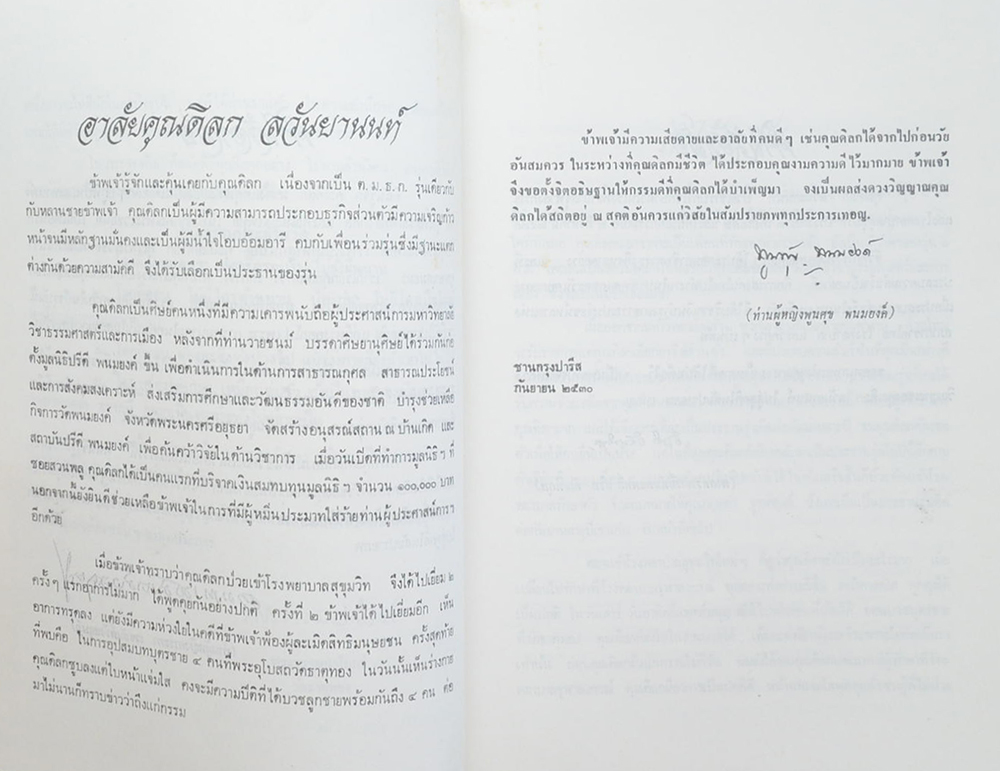 อาลัยคุณดิลก ลวันยานนท์
ข้าพเจ้ารู้จักและคุ้นเคยกับคุณดิลก เนื่องจากเป็น ต.ม.ธ.ก. รุ่นเดียวกับ
กับหลานชายข้าพเจ้า คุณดิลกเป็นผู้มีความสามารถประกอบธุรกิจส่วนตัวมีความเจริญก้าว
หน้าจนมีหลักฐานมั่นคงและเป็นผู้มีน้ำใจโอบอ้อมอารี คบกับเพื่อนร่วมรุ่นซึ่งมีฐานะแตก
ต่างกันด้วยความสามัคคี จึงได้รับเลือกเป็นประธานของรุ่น
คุณดิลกเป็นศิษย์คนหนึ่งที่มีความเคารพนับถือผู้ประศาสน์การมหาวิทยาลัย
วิชาธรรมศาสตร์และการเมือง หลังจากที่ท่านวายชนม์ บรรดาศิษยานุศิษย์ได้ร่วมกันก่อ
ตั้งมูลนิธิปรีดี พนมยงค์ ขึ้น เพื่อดำเนินการในด้านการสาธารณกุศล สาธารณประโยชน์
และการสังคมสงเคราะห์ ส่งเสริมการศึกษาและวัฒนธรรมอันดีของชาติ บำรุงช่วยเหลือ
กิจการวัดพนมยงค์ จังหวัดพระนครศรีอยุธยา จัดสร้างอนุสรณ์สถาน ณ บ้านเกิด และ
สถาบันปรีดี พนมยงค์ เพื่อค้นคว้าวิจัยในด้านวิชาการ เมื่อวันเปิดที่ทำการมูลนิธิฯ ที่
ซอยสวนพลู คุณดิลกได้เป็นคนแรกที่บริจาคเงินสมทบทุนมูลนิธิฯ จำนวน ๑๐๐,๐๐๐ บาท
นอกจากนี้ยังยินดีช่วยเหลือข้าพเจ้าในการที่มีผู้หมิ่นประมาทใส่ร้ายท่านผู้ประศาสน์การฯ
อีกด้วย
เมื่อข้าพเจ้าทราบว่าคุณดิลกป่วยเข้าโรงพยาบาลสุขุมวิท จึงได้ไปเยี่ยม ๒
ครั้งๆ แรกอาการไม่มาก ได้พูดคุยกันอย่างปกติ ครั้งที่ ๒ ข้าพเจ้าได้ไปเยี่ยมอีก เห็น
อาการทรุดลง แต่ยังมีความห่วงใยในคดีที่ข้าพเจ้าฟ้องผู้ละเมิดสิทธิมนุษยชน ครั้งสุดท้าย
ที่พบคือ ในการอุปสมบทบุตรชาย ๔ คนที่พระอุโบสถวัดธาตุทอง ในวันนั้นเห็นร่างกาย
คุณดิลกซูบลงแต่ใบหน้าแจ่มใส คงจะมีความปิติที่ได้บวชลูกชายพร้อมกันถึง ๔ คน ต่อ
มาไม่นานก็ทราบข่าวว่าถึงแก่กรรม
ข้าพเจ้ามีความเสียดายและอาลัยที่คนดีๆ เช่นคุณดิลกได้จากไปก่อนวัย
อันสมควร ในระหว่างที่คุณดิลกมีชีวิต ได้ประกอบคุณงามความดีไว้มากมาย ข้าพเจ้า
จึงขอตั้งจิตอธิษฐานให้กรรมดีที่คุณดิลกได้บำเพ็ญมา จงเป็นผลส่งดวงวิญญาณคุณ
ดิลกได้สถิตอยู่ ณ สุคติอันควรแก่วิสัยในสัมปรายภพทุกประการเทอญ.
พูนศุข พนมยงค์
(ท่านผู้หญิงพูนศุข พนมยงค์)
ชานกรุงปารีส
กันยายน ๒๕๓๐